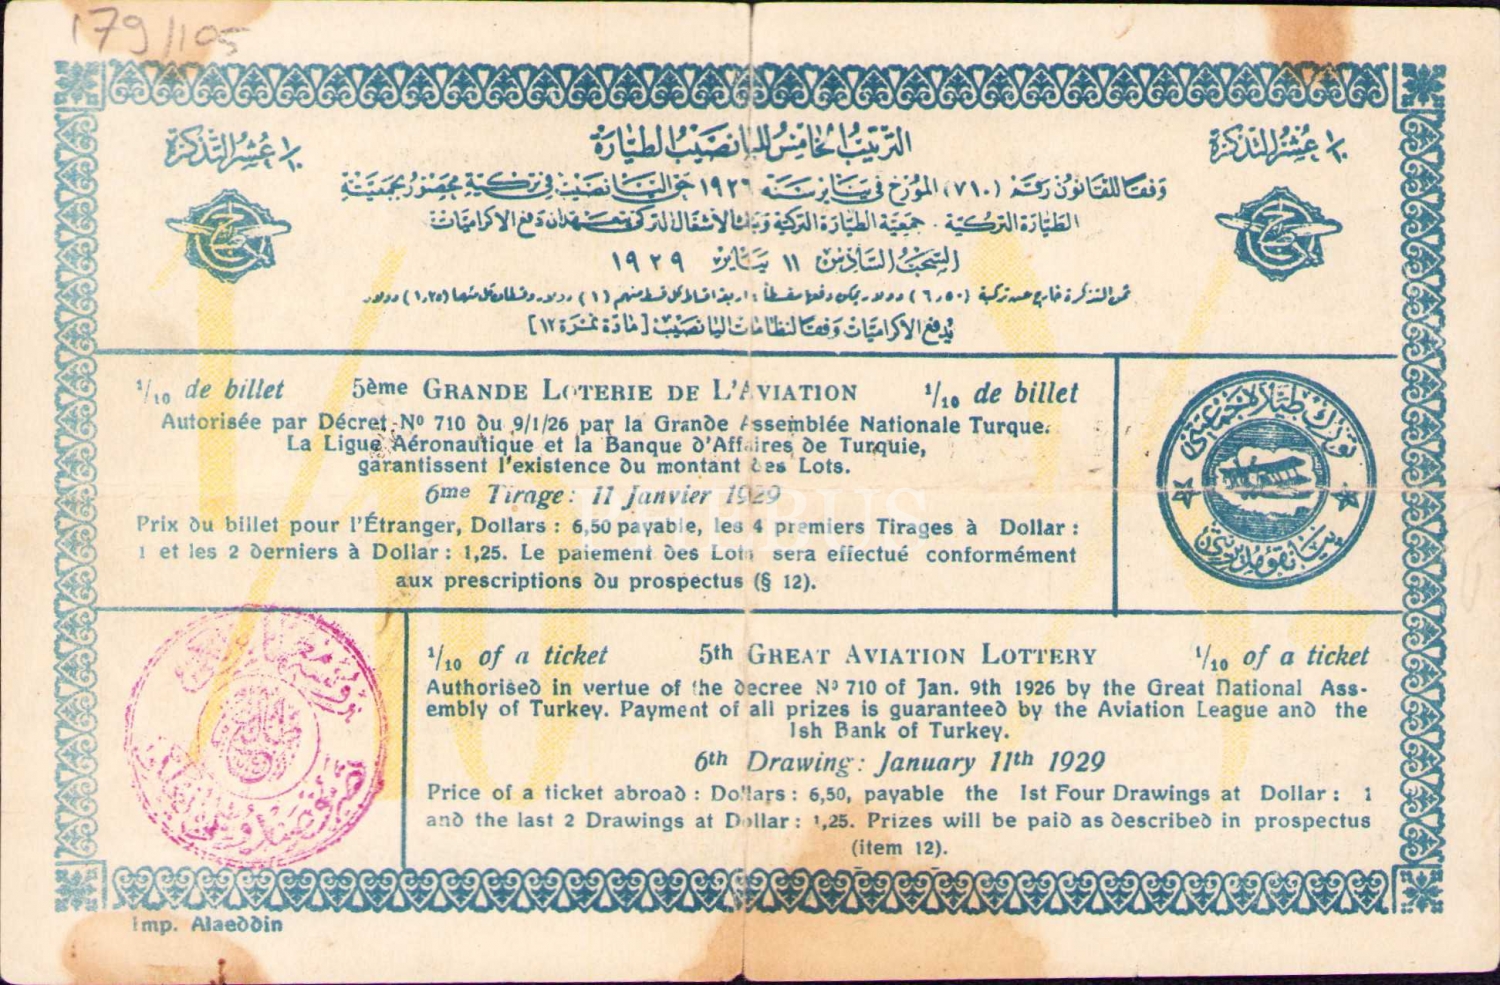 179/105
١/١٠ عُشر التذكرة
الترتيب الخامس لليانصيب الطيارة
١/١٠ عُشر التذكرة
وفقا للقانون رقم (٧١٠) المؤرخ في يناير سنة ١٩٢٦ حق اليانصيب في تركية محصور بجمعية
الطيارة التركية . جمعية الطيارة التركية وبنك الأشغال التركي تتعهدان دفع الاكراميات
السحب السادس ١١ يناير ١٩٢٩
ثمن التذكرة خارج عن تركية (٦,٥٠) دولار يمكن دفعها مقسطاً اربعة اقساط كل قسط منهم (١) دولار وقسطان كل منهما (١,٢٥) دولار
يُدفع الاكراميات وفقا لنظامات اليانصيب [مادة نمرة ١٢]
1/10 de billet 5ème GRANDE LOTERIE DE L'AVIATION 1/10 de billet
Autorisée par Décret Nº 710 du 9/1/26 par la Grande Assemblée Nationale Turque.
La Ligue Aéronautique et la Banque d'Affaires de Turquie,
garantissent l'existence du montant des Lots.
6me Tirage: 11 Janvier 1929
Prix du billet pour l'Étranger, Dollars : 6,50 payable, les 4 premiers Tirages à Dollar :
1 et les 2 derniers à Dollar : 1,25. Le paiement des Lots sera effectué conformément
aux prescriptions du prospectus (§ 12).
PHEBUS
1/10 of a ticket 5th GREAT AVIATION LOTTERY 1/10 of a ticket
Authorised in vertue of the decree Nº 710 of Jan. 9th 1926 by the Great National Ass-
embly of Turkey. Payment of all prizes is guaranteed by the Aviation League and the
Ish Bank of Turkey.
6th Drawing: January 11th 1929
Price of a ticket abroad : Dollars : 6,50, payable the 1st Four Drawings at Dollar : 1
and the last 2 Drawings at Dollar : 1,25. Prizes will be paid as described in prospectus
(item 12).
Imp. Alaeddin